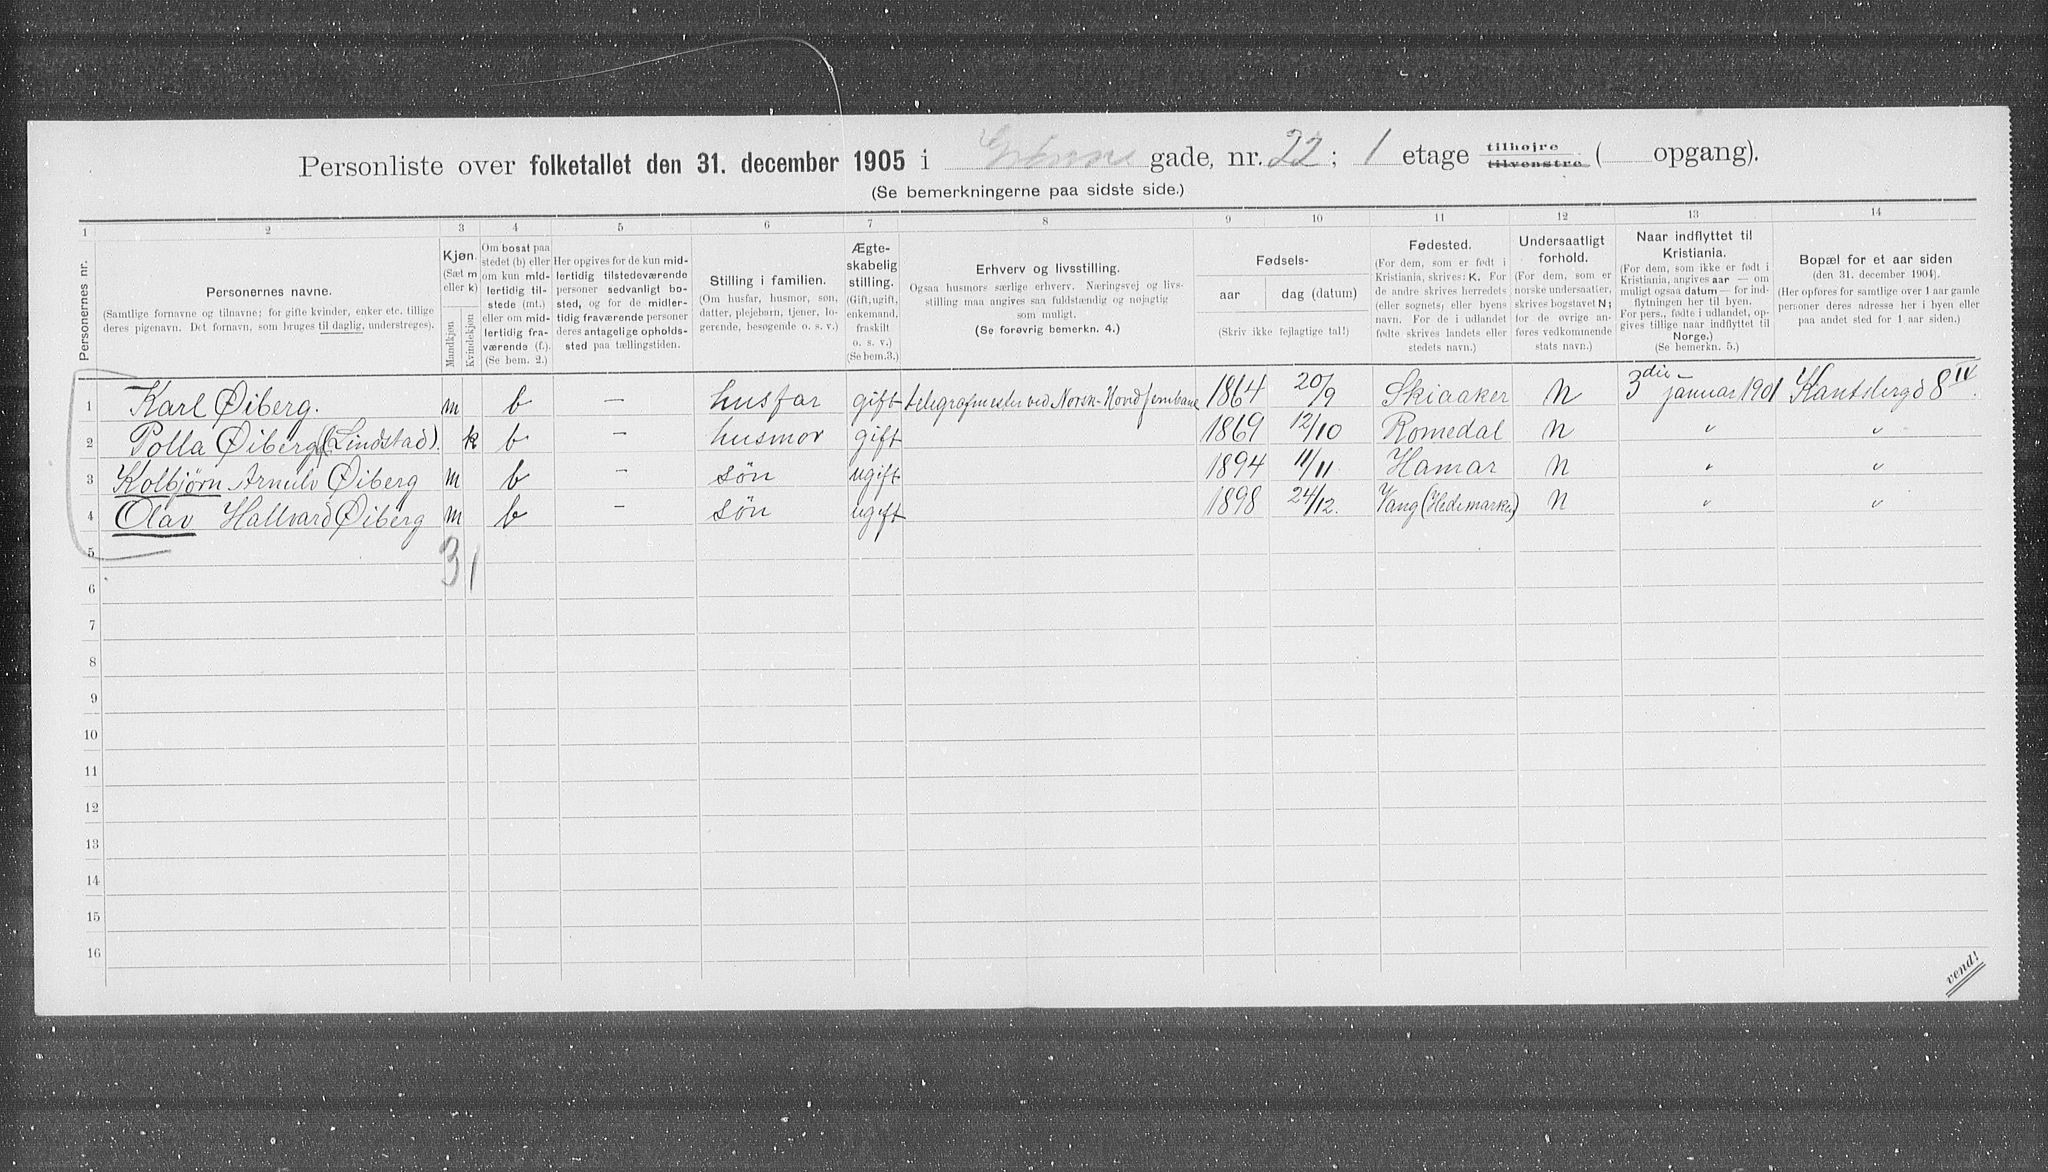 Personliste over folketallet den 31. december 1905 i gade, nr. 22; 1 etage tilhøjre tilvenstre ( opgang).
(Se bemerkningerne paa sidste side.)
1 2 3 4 5 6 7 8 9 10 11 12 13 14
Personernes nr.
Personernes navne.
(Samtlige fornavne og tilnavne; for gifte kvinder, enker etc. tillige deres pigenavn. Det fornavn, som bruges til daglig, understreges).
Kjøn.
(Sæt m eller k)
Mandkjøn
Kvindekjøn
Om bosat paa stedet (b) eller om kun midlertidig tilstede (mt.) eller om midlertidig fraværende (f.). (Se bem. 2.)
Her opgives for de kun midlertidig tilstedeværende personer sedvanligt bosted, og for de midlertidig fraværende personer deres antagelige opholdssted paa tællingstiden.
Stilling i familien.
(Om husfar, husmor, søn, datter, plejebarn, tjener, logerende, besøgende o. s. v.)
Ægteskabelig stilling.
(Gift, ugift, enkemand, fraskilt o. s. v.)
(Se bem. 3.)
Erhverv og livsstilling.
Ogsaa husmors særlige erhverv. Næringsvej og livsstilling maa angives saa fuldstændig og nøjagtig som muligt.
(Se forøvrig bemerkn. 4.)
Fødsels-
aar
dag (datum)
(Skriv ikke fejlagtige tal!)
Fødested.
(For dem, som er født i Kristiania, skrives: K. For de andre skrives herredets (eller sognets) eller byens navn. For de i udlandet fødte skrives landets eller stedets navn.)
Undersaatligt forhold.
(For dem, som er norske undersaatter, skrives bogstavet N; for de øvrige anføres vedkommende stats navn.)
Naar indflyttet til Kristiania.
(For dem, som ikke er født i Kristiania, angives aar — om muligt ogsaa datum — for indflytningen her til byen. For pers., fødte i udlandet, opgives tillige naar indflyttet til Norge.)
(Se bemerkn. 5.)
Bopæl for et aar siden
(den 31. december 1904).
(Her opføres for samtlige over 1 aar gamle personer deres adresse her i byen eller paa andet sted for 1 aar siden.)
1 Karl Øiberg. m b — husfar gift telegrafmester ved Norsk-Hovedjernbane 1864 20/9 Skiaaker N 3die januar 1901 8 IV.
2 Polla Øiberg (Lindstad). k b — husmor gift 1869 12/10 Romedal N " "
3 Kolbjørn Arnulv Øiberg m b — søn ugift 1894 11/11. Hamar N " "
4 Olav Hallvard Øiberg m b — søn ugift 1898 24/12. Vang (Hedemarken) N " "
3 1
5
6
7
8
9
10
11
12
13
14
15
16
vend!